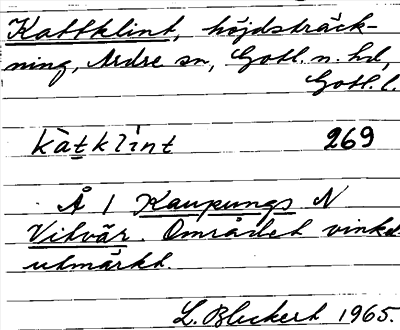 Kattklint, höjdsträck-
ning, Ardre sn, Gotl. n. hd,
Gotl. l.
kàtklint 269
Å 1 Kaupungs N
Vitvär. Området vinkel
utmärkt.
L. Blickert 1965.